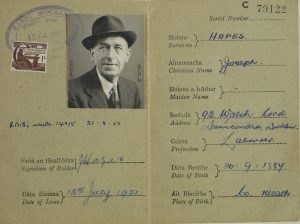 C 79122
Serial Number
Sloinne
Surname
HAPES.
Ainmneacha
Christian Name
Joseph
Sloinne a hAthar
Maiden Name
Seoladh
Address
92, Walsh Road,
Drumcondra, Dublin.
Gairm
Profession
Labourer
Dáta Breithe
Date of Birth
20. 9. 1887
Áit Bhreithe
Place of Birth
Co. Meath
21. 8. 51
Síniú an tSealbhóra
Signature of Holder
Dáta Eisiúna
Date of Issue
12th July 1951